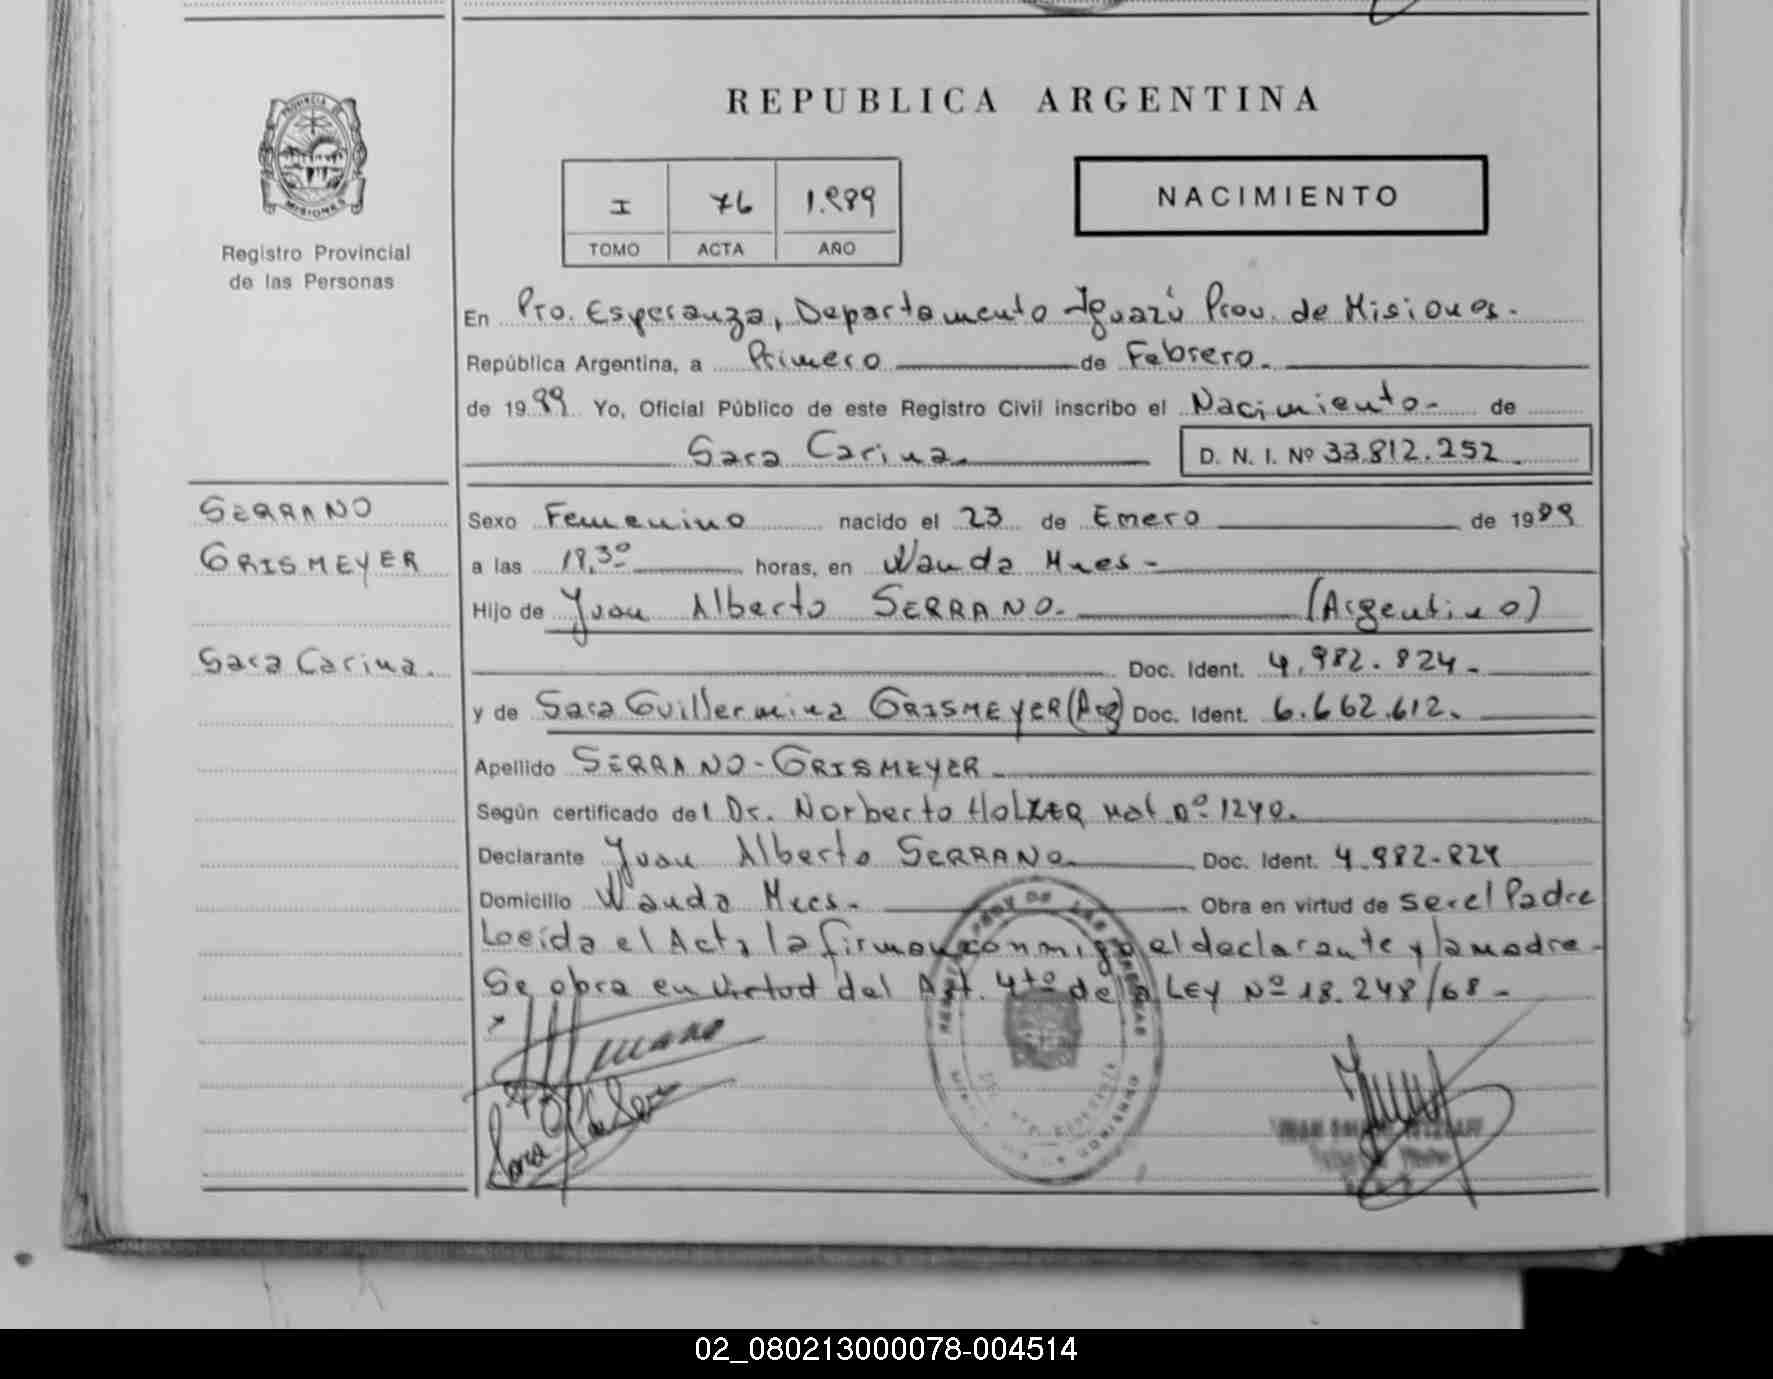 PROVINCIA DE
MISIONES
Registro Provincial
de las Personas
REPUBLICA ARGENTINA
I 76 1.989
TOMO ACTA AÑO
NACIMIENTO
En Pto. Esperanza, Departamento Iguazú Prov. de Misiones.
República Argentina, a Primero de Febrero.
de 1989 Yo, Oficial Público de este Registro Civil inscribo el Nacimiento- de
Sara Carina.
D. N. I. Nº 33.812.252.
SERRANO
GRISMEYER
Sara Carina.
Sexo Femenino nacido el 23 de Enero de 1989
a las 19,30 horas, en Wanda Mnes-
Hijo de Juan Alberto SERRANO. (Argentino)
Doc. Ident. 4.982.824-
y de Sara Guillermina GRISMEYER (Arg) Doc. Ident. 6.662.612.
Apellido SERRANO-GRISMEYER
Según certificado del Dr. Norberto HOLZER Mat Nº 1240.
Declarante Juan Alberto SERRANO. Doc. Ident. 4.982.824
Domicilio Wanda Mnes. Obra en virtud de ser el Padre
Loeída el Acta, la firman conmigo el declarante y la madre.
Se obra en virtud del Art. 4to de la LEY Nº 18.248/68-
02_080213000078-004514